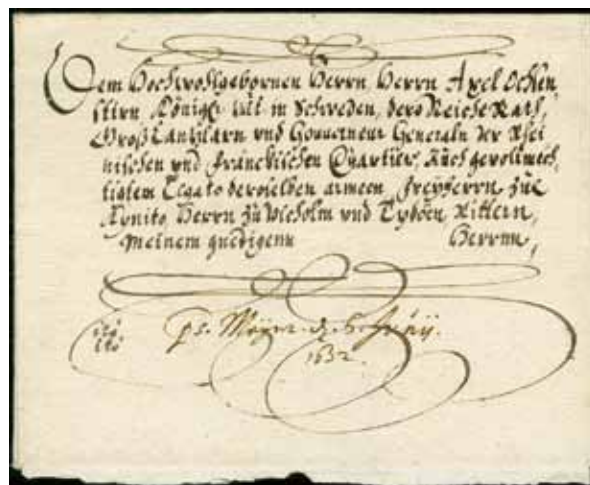 Dem Hochwohlgebornen Herrn, Herrn Axel Ochsen,
stirn Königl: Mtt in Schweden, dero Reichs Rath,
Groß Cantzlarn vnd Gouverneur Generaln der Rhei
nischen vnd Fränckischen Quartier, Auch gevollmech,
tigtem Legato deroselben armeen, Freyherrn zue
Kymito Herrn zu Vieholm vnd Tydöen, Rittern,
Meinem gnedigenn Herrnn,
cito
cito
Ps. Mayn. d. Junij.
1632.